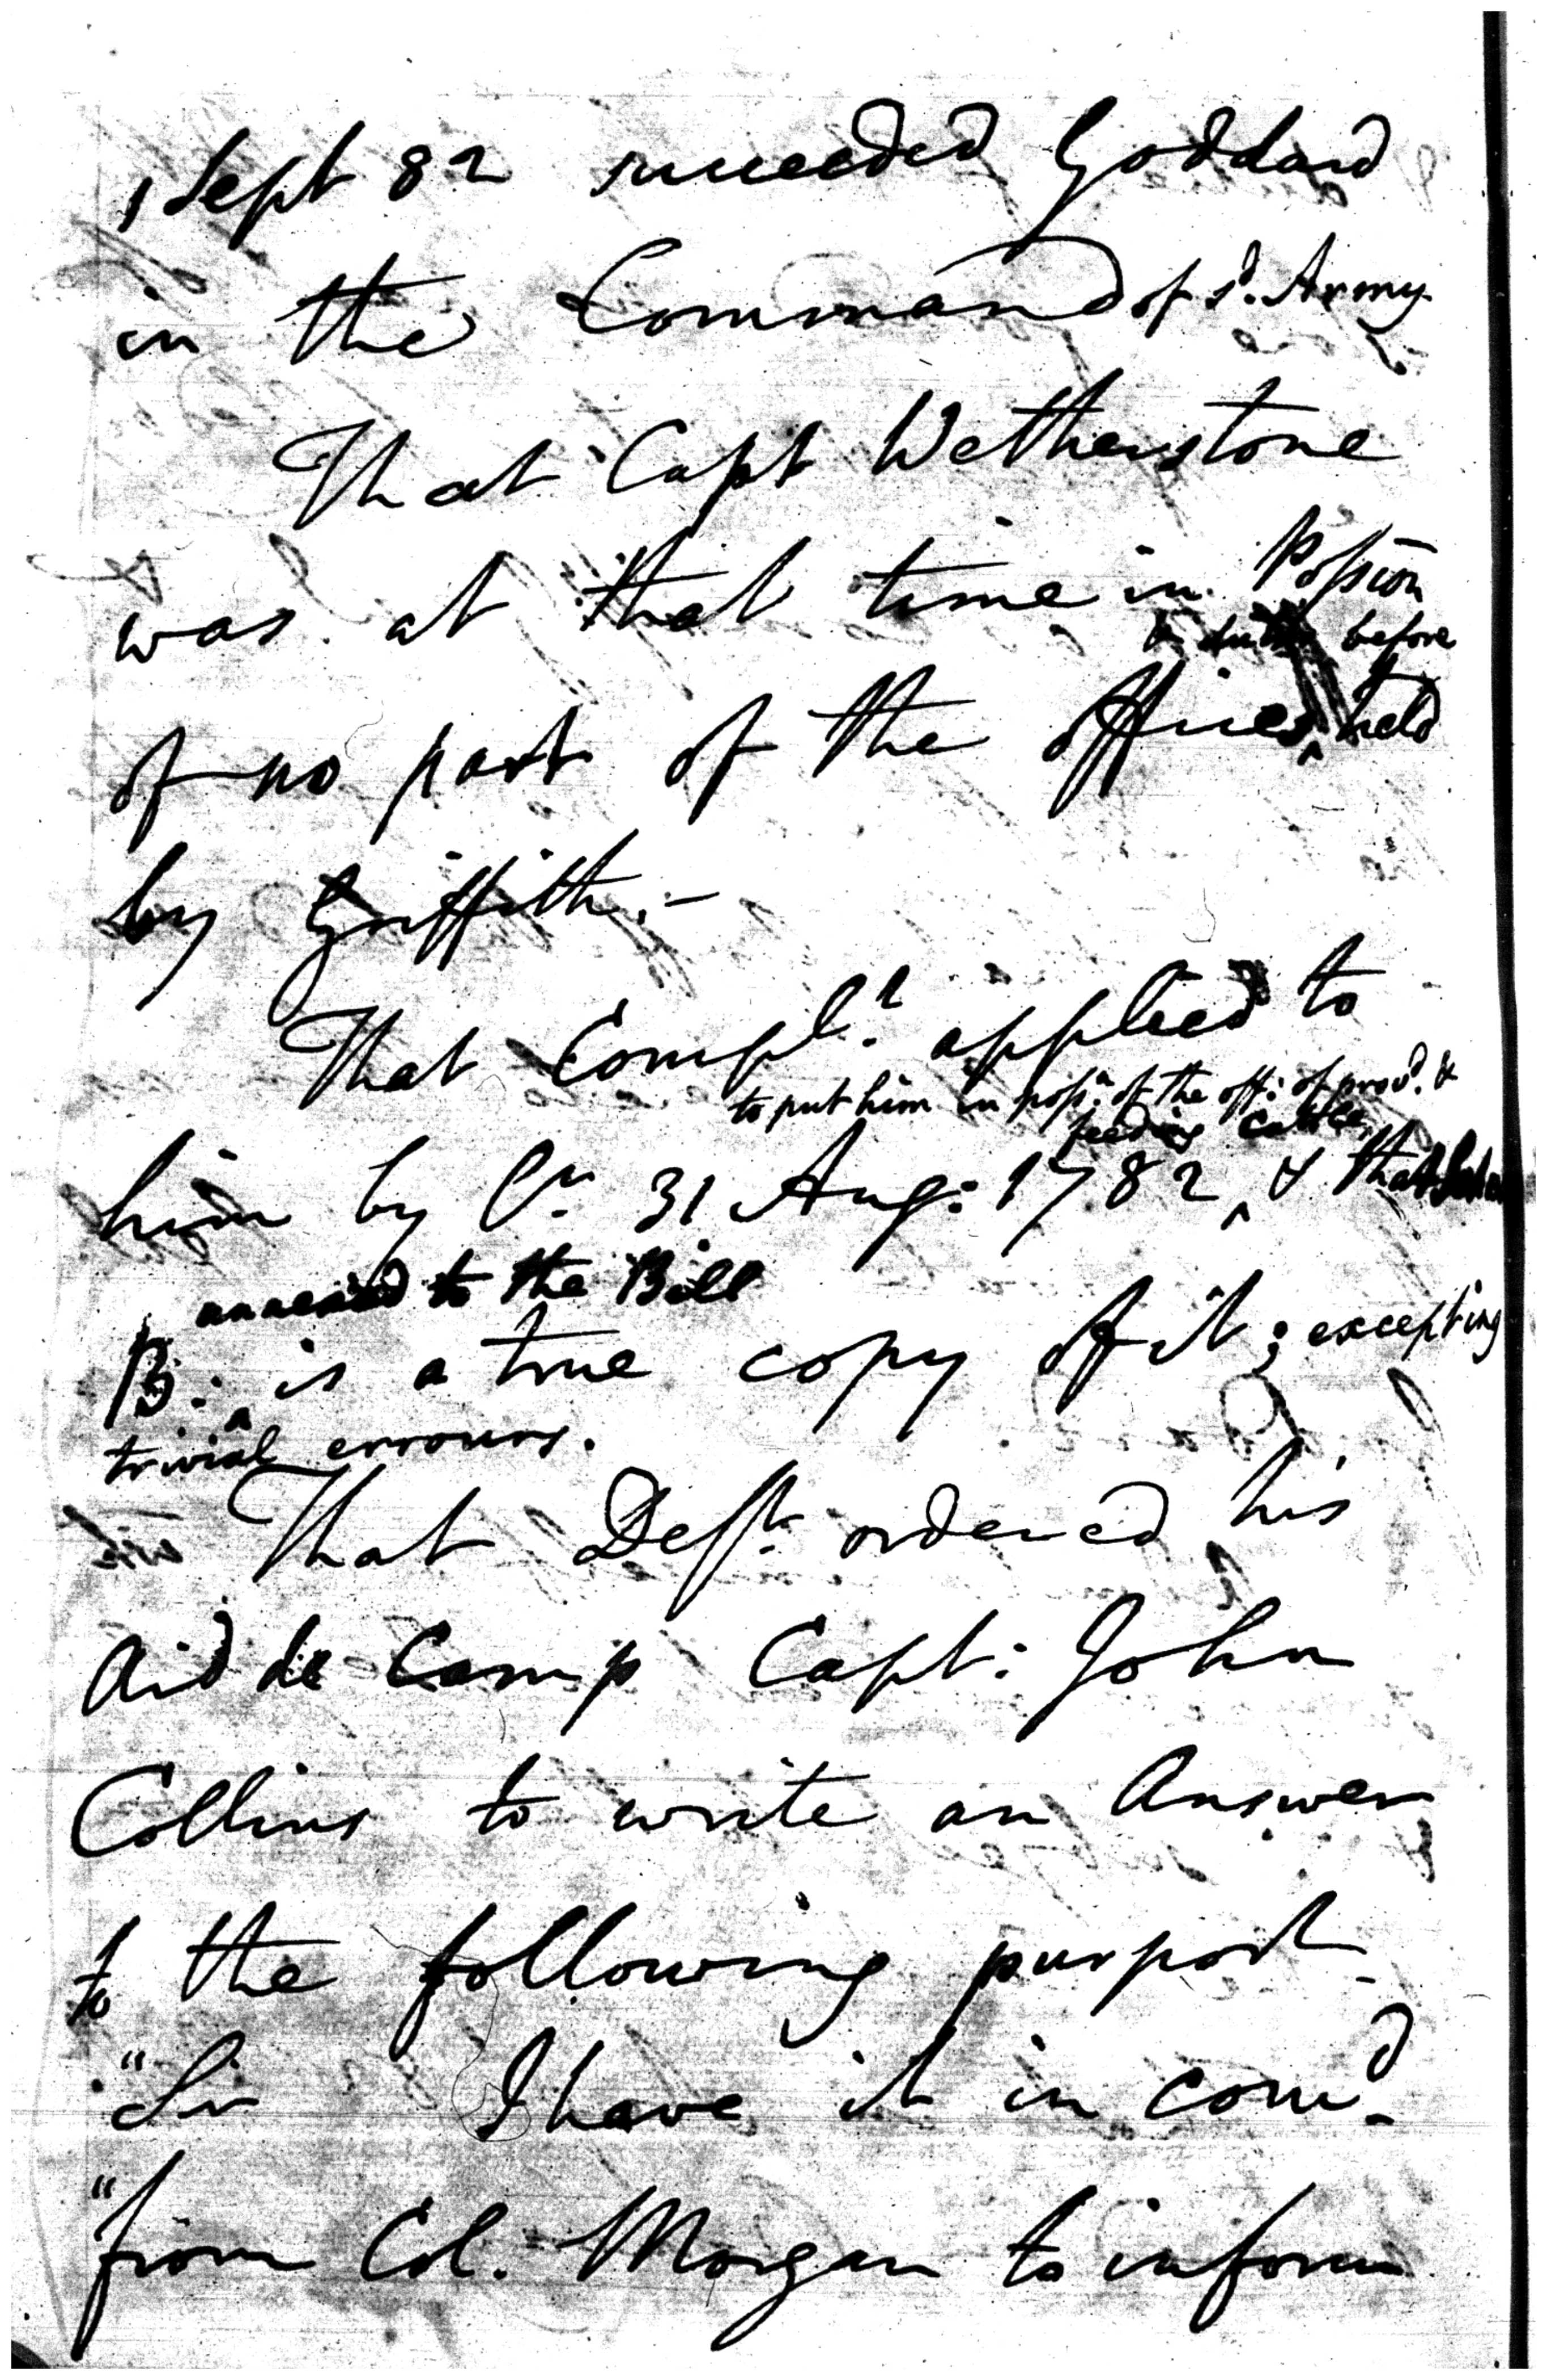 1 Sept 82 succeeded Goddard
in the Command of sd. Army
That Capt Wetherstone
was at that time in Possion
& before
of no part of the offices held
by Griffith.-
That Complt. applied to
to put him in possn. of the off: of provd. &
feeding Cattle,
him by lr. 31 Aug: 1782 & that
annexed to the Bill
B: is a true copy of it; excepting
trivial errours.
That Deft. ordered his
Aid de Camp Capt: John
Collins to write an Answer
to the following purport
"Sir I have it in comd.
"from Col. Morgan to inform